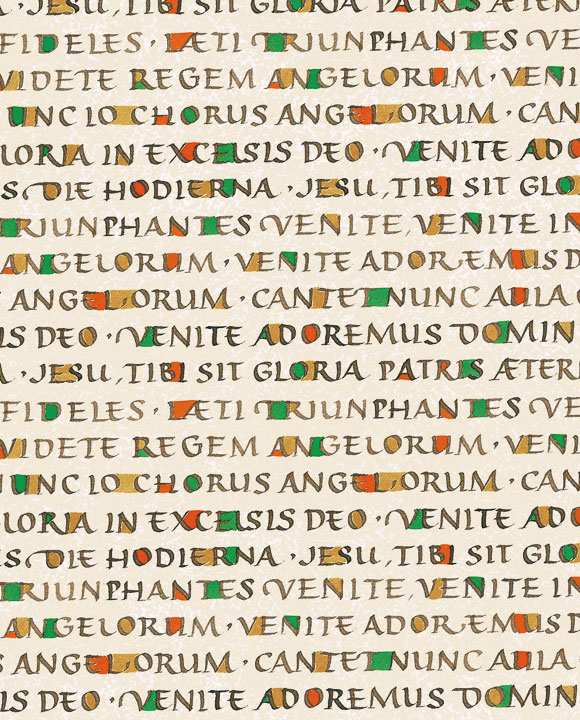 JESU, TIBI SIT GLORIA PATRIS ÆTER
FIDELES · LÆTI TRIUNPHANTES VE
VIDETE REGEM ANGELORUM, VENI
UNC IO CHORUS ANGELORUM · CAN
LORIA IN EXCELSIS DEO · VENITE ADO
S DIE HODIERNA · JESU, TIBI SIT GLO
TRIUNPHANTES VENITE, VENITE IN
ANGELORUM · VENITE ADOREMUS D
ANGELORUM · CANTET NUNC AULA
IS DEO · VENITE ADOREMUS DOMIN
A · JESU, TIBI SIT GLORIA PATRIS ÆTER
FIDELES · LÆTI TRIUNPHANTES VE
VIDETE REGEM ANGELORUM, VENI
UNC IO CHORUS ANGELORUM · CAN
LORIA IN EXCELSIS DEO · VENITE ADO
S DIE HODIERNA · JESU, TIBI SIT GLO
TRIUNPHANTES VENITE, VENITE IN
ANGELORUM · VENITE ADOREMUS D
S ANGELORUM · CANTET NUNC AULA
IS DEO · VENITE ADOREMUS DOMIN